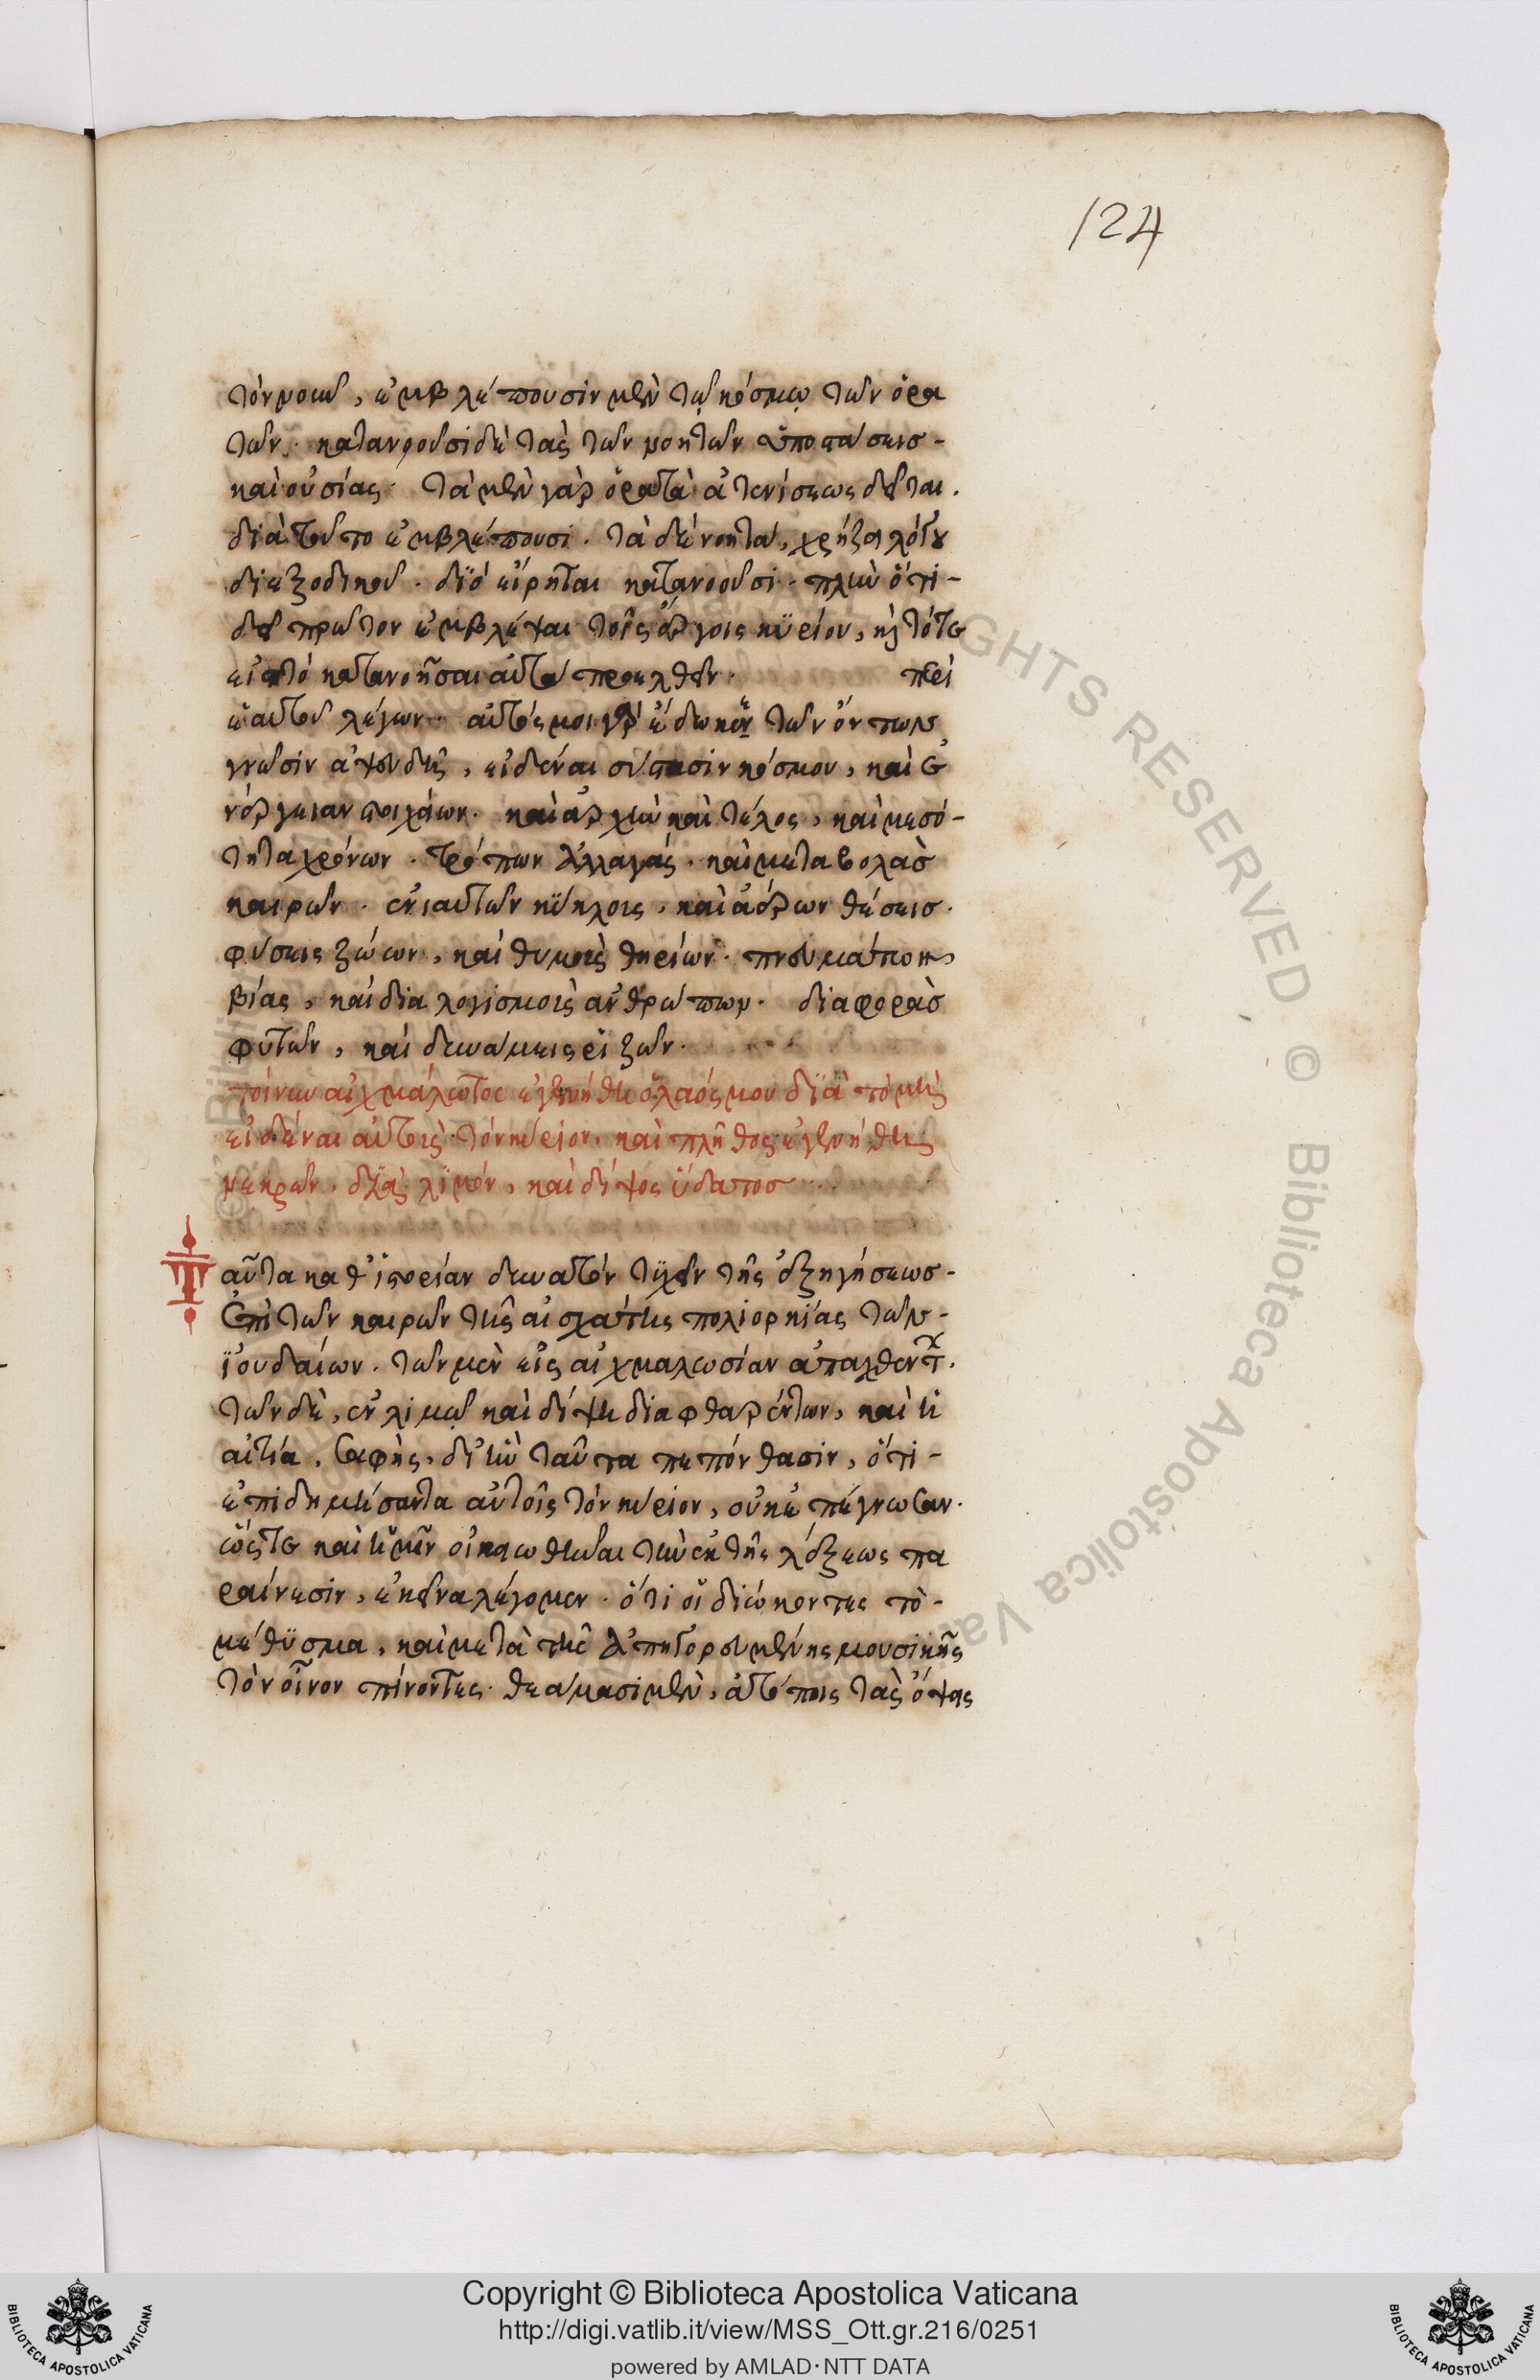 124
τὸν νοῦν, ἐμβλέπουσιν μὲν τῷ κόσμῳ τῶν ὁρα
τῶν. κατανοοῦσι δὲ τὰς τῶν νοητῶν ὑποστάσεις
καὶ οὐσίας. τὰ μὲν γὰρ ὁρατὰ ἀτενίσεως δεῖται.
διὰ τοῦτο ἐμβλέπουσι. τὰ δὲ νοητά, χρήζει λόγου
διεξοδικοῦ. διὸ εἴρηται κατανοοῦσι. πλὴν ὅτι
δεῖ πρῶτον ἐμβλέψαι τοῖς ἔργοις κυρίου, καὶ τότε
εἰς τὸ κατανοῆσαι αὐτὰ προελθεῖν. περὶ
ἑαυτοῦ λέγων. αὐτός μοι γὰρ ἔδωκεν τῶν ὄντων
γνῶσιν ἀψευδῆ, εἰδέναι σύστασιν κόσμου, καὶ ἐ
νέργειαν στοιχείων. καὶ ἀρχὴν καὶ τέλος, καὶ μεσό-
τητα χρόνων. τρόπων ἀλλαγάς. καὶ μεταβολὰς
καιρῶν. ἐνιαυτῶν κύκλους, καὶ ἀστέρων θέσεις.
φύσεις ζώων, καὶ θυμοὺς θηρίων. πνευμάτων
βίας, καὶ διαλογισμοὺς ἀνθρώπων. διαφορὰς
φυτῶν, καὶ δυνάμεις ῥιζῶν.
τοίνυν αἰχμάλωτος ἐγενήθη ὁ λαός μου διὰ τὸ μὴ
εἰδέναι αὐτοὺς τὸν κύριον. καὶ πλῆθος ἐγενήθη
νεκρῶν. διὰ λιμόν, καὶ δίψος ὕδατος
Ταῦτα καθ' ἱστορίαν δυνατὸν τυχεῖν τῆς ἐξηγήσεως
ἐπὶ τῶν καιρῶν τῆς αἰσχάτης πολιορκίας τῶν
ἰουδαίων. τῶν μὲν εἰς αἰχμαλωσίαν ἀπελθόντων.
τῶν δὲ, ἐν λιμῷ καὶ δίψη διαφθαρέντων, καὶ ἡ
αἰτία, σαφής, δι' ἣν ταῦτα πεπόνθασιν, ὅτι
ἐπιδημήσαντα αὐτοῖς τὸν κύριον, οὐκ ἐπέγνωσαν.
ὥστε καὶ ἡμῖν οἰκειωθῆναι τὴν ἐκ τῆς λέξεως πα
ραίνεσιν, ἐκεῖνα λέγομεν. ὅτι οἱ διώκοντες τὸ
μέθυσμα, καὶ μετὰ τῆς ἀπηγορευμένης μουσικῆς
τὸν οἶνον πίνοντες. θεάμασι μὲν, ἀτόποις τὰς ὄψεις
Copyright © Biblioteca Apostolica Vaticana
http://digi.vatlib.it/view/MSS_Ott.gr.216/0251
powered by AMLAD·NTT DATA